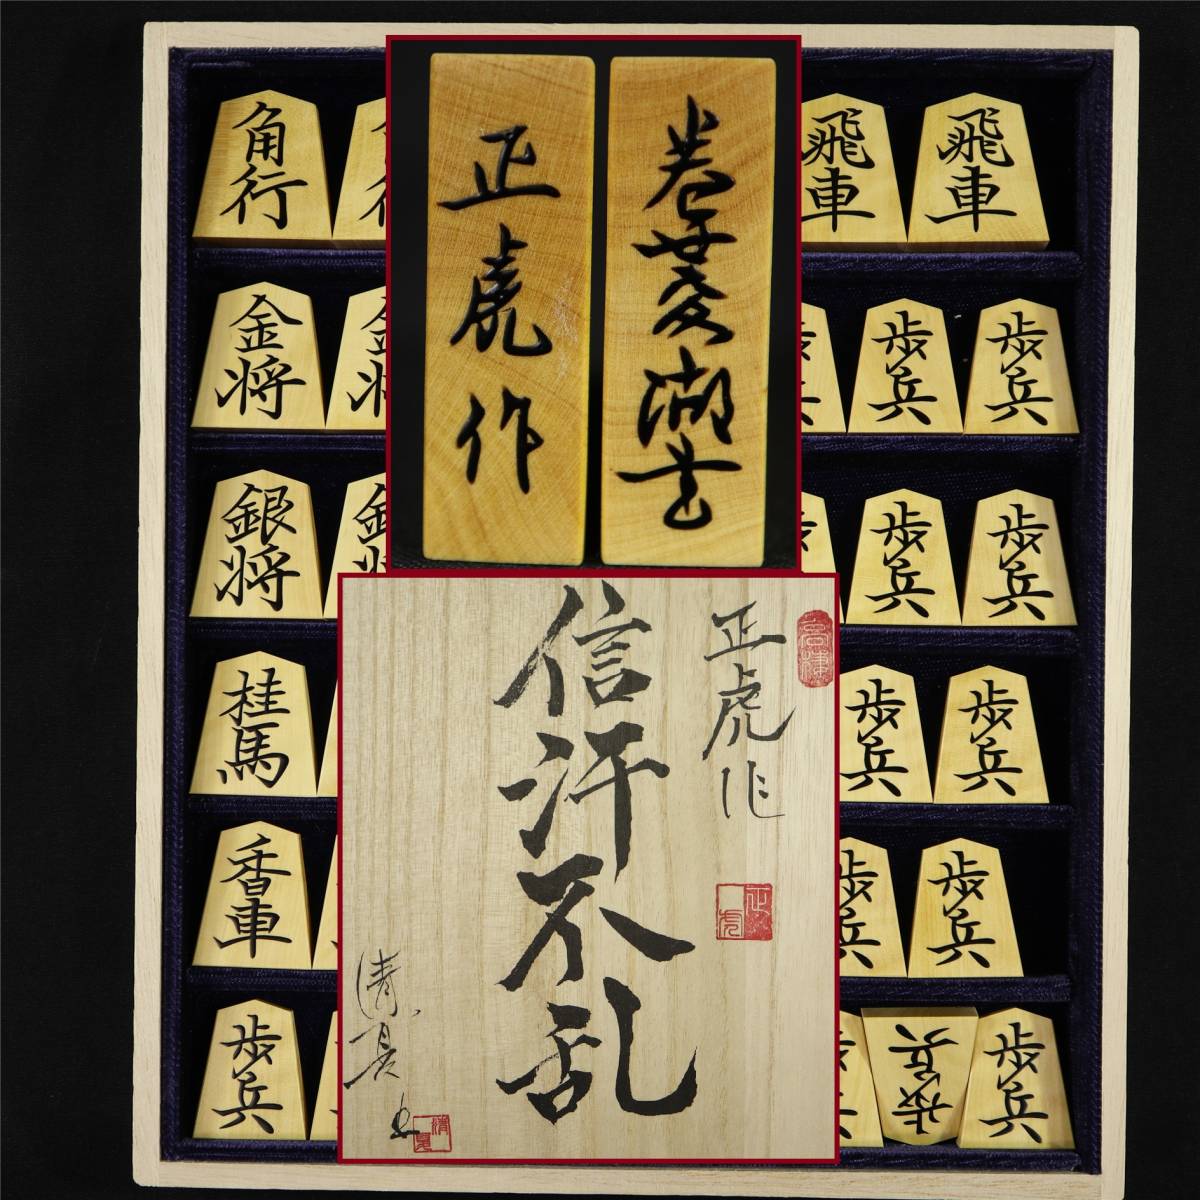 角行
飛車
飛車
金将
歩兵
歩兵
銀将
歩兵
歩兵
桂馬
歩兵
歩兵
香車
歩兵
歩兵
歩兵
歩兵
歩兵
巻菱湖書
正虎作
正虎作
正虎
信汗不乱